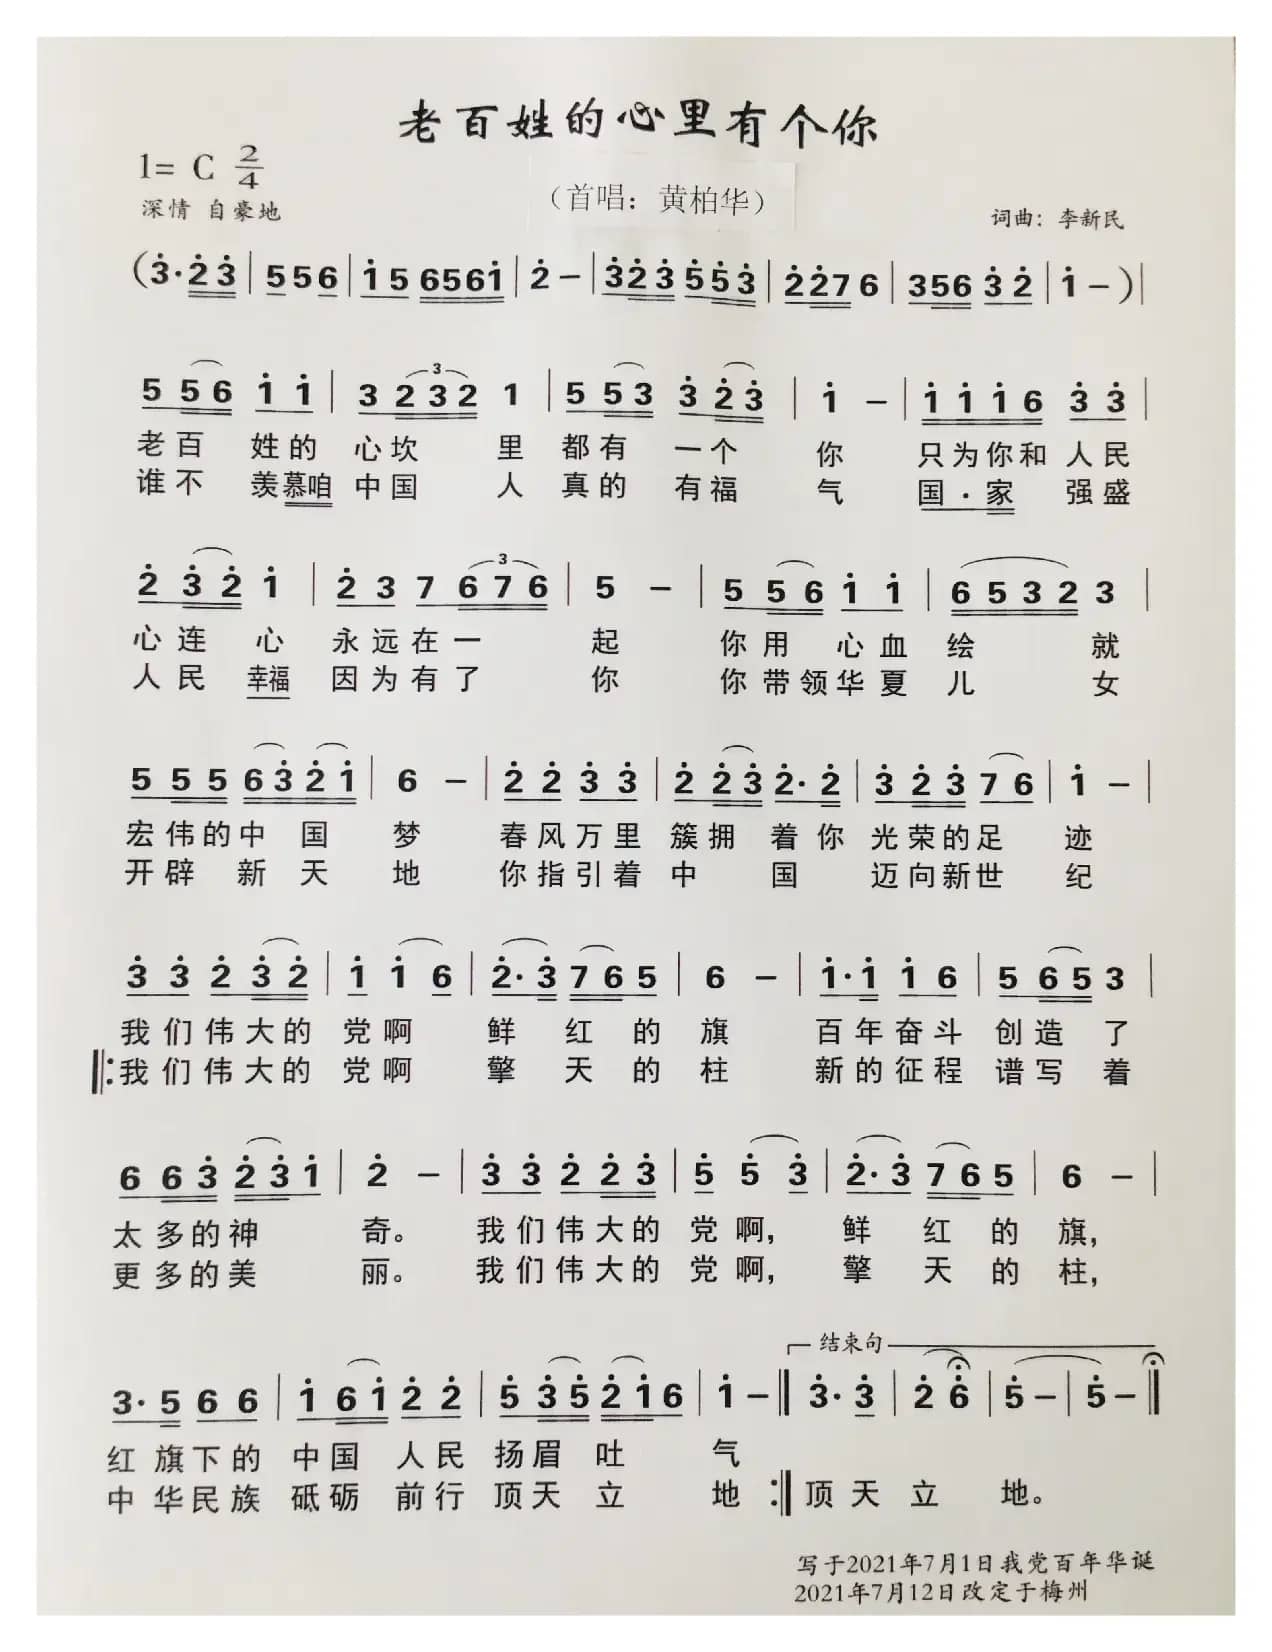 老百姓的心里有个你
1= C 2/4
（首唱：黄柏华）
深情 自豪地
词曲：李新民
(3̇·2̇3̇|556|1̇5 6561̇|2̇ －|3̇2̇3̇ 5̇5̇3̇|2̇2̇76|356 3̇2̇|1̇ －)|
5 56 1̇ 1̇|3 232 1|5 53 3̇ 2̇3̇|1̇ －|1̇1̇1̇6 3̇ 3̇|
3 3
老百 姓的 心坎 里 都有 一个 你 只为你和 人民
谁不 羡慕咱 中国 人 真的 有福 气 国·家 强盛
2̇ 3̇2̇ 1̇|2̇ 3 7 676|5 －|5 56 1̇ 1̇|6532 3|
3
心连 心 永远在一 起 你用 心血 绘 就
人民 幸福 因为有了 你 你带领华夏 儿 女
5 55 63̇2̇1̇|6 －|2̇ 2̇ 3̇ 3̇|2̇ 2̇3̇ 2̇·2̇|3̇ 2̇3̇ 76|1̇ －|
宏伟的中 国 梦 春风万里 簇拥 着你 光荣的足 迹
开辟 新 天 地 你指引着 中 国 迈向新世 纪
3̇ 3̇ 2̇ 3̇2̇|1̇ 1̇ 6|2̇·3̇ 765|6 －|1̇·1̇ 1̇ 6|5 65 3|
我们伟大的 党啊 鲜 红 的 旗 百年奋斗 创造 了
‖:我们伟大的 党啊 擎 天 的 柱 新的征程 谱写 着
6 63̇ 2̇3̇1̇|2̇ －|3̇ 3̇ 2̇ 2̇3̇|5̇ 5̇ 3̇|2̇·3̇ 765|6 －|
太多的神 奇。 我们伟大的 党啊， 鲜 红 的 旗，
更多的美 丽。 我们伟大的 党啊， 擎 天 的 柱，
结束句
3·5 6 6|1̇ 61̇ 2̇ 2̇|5̇ 3̇5̇ 2̇1̇6|1̇ －‖3̇·3̇|2̇ 6̇|5̇ －|5̇ －‖
红旗下的 中国 人民 扬眉 吐 气
中华民族 砥砺 前行 顶天 立 地 :‖顶天 立 地。
写于2021年7月1日我党百年华诞
2021年7月12日改定于梅州